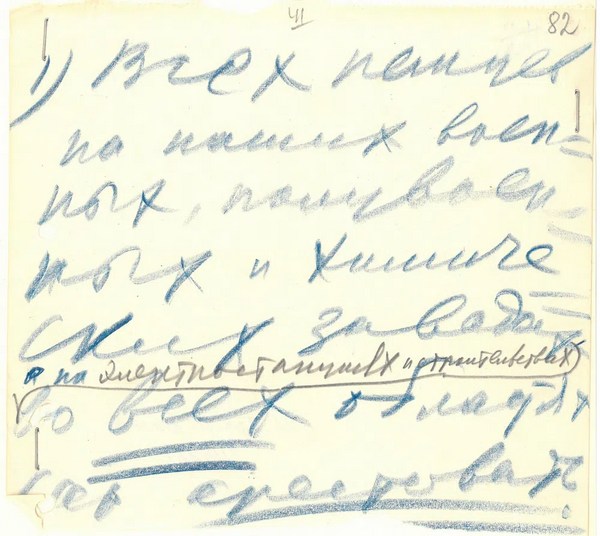 82
1) Всех немцев
на наших воен-
ных, полувоен-
ных и химиче-
ских заводах
и на электростанциях и строительствах)
во всех областях
всех арестовать!